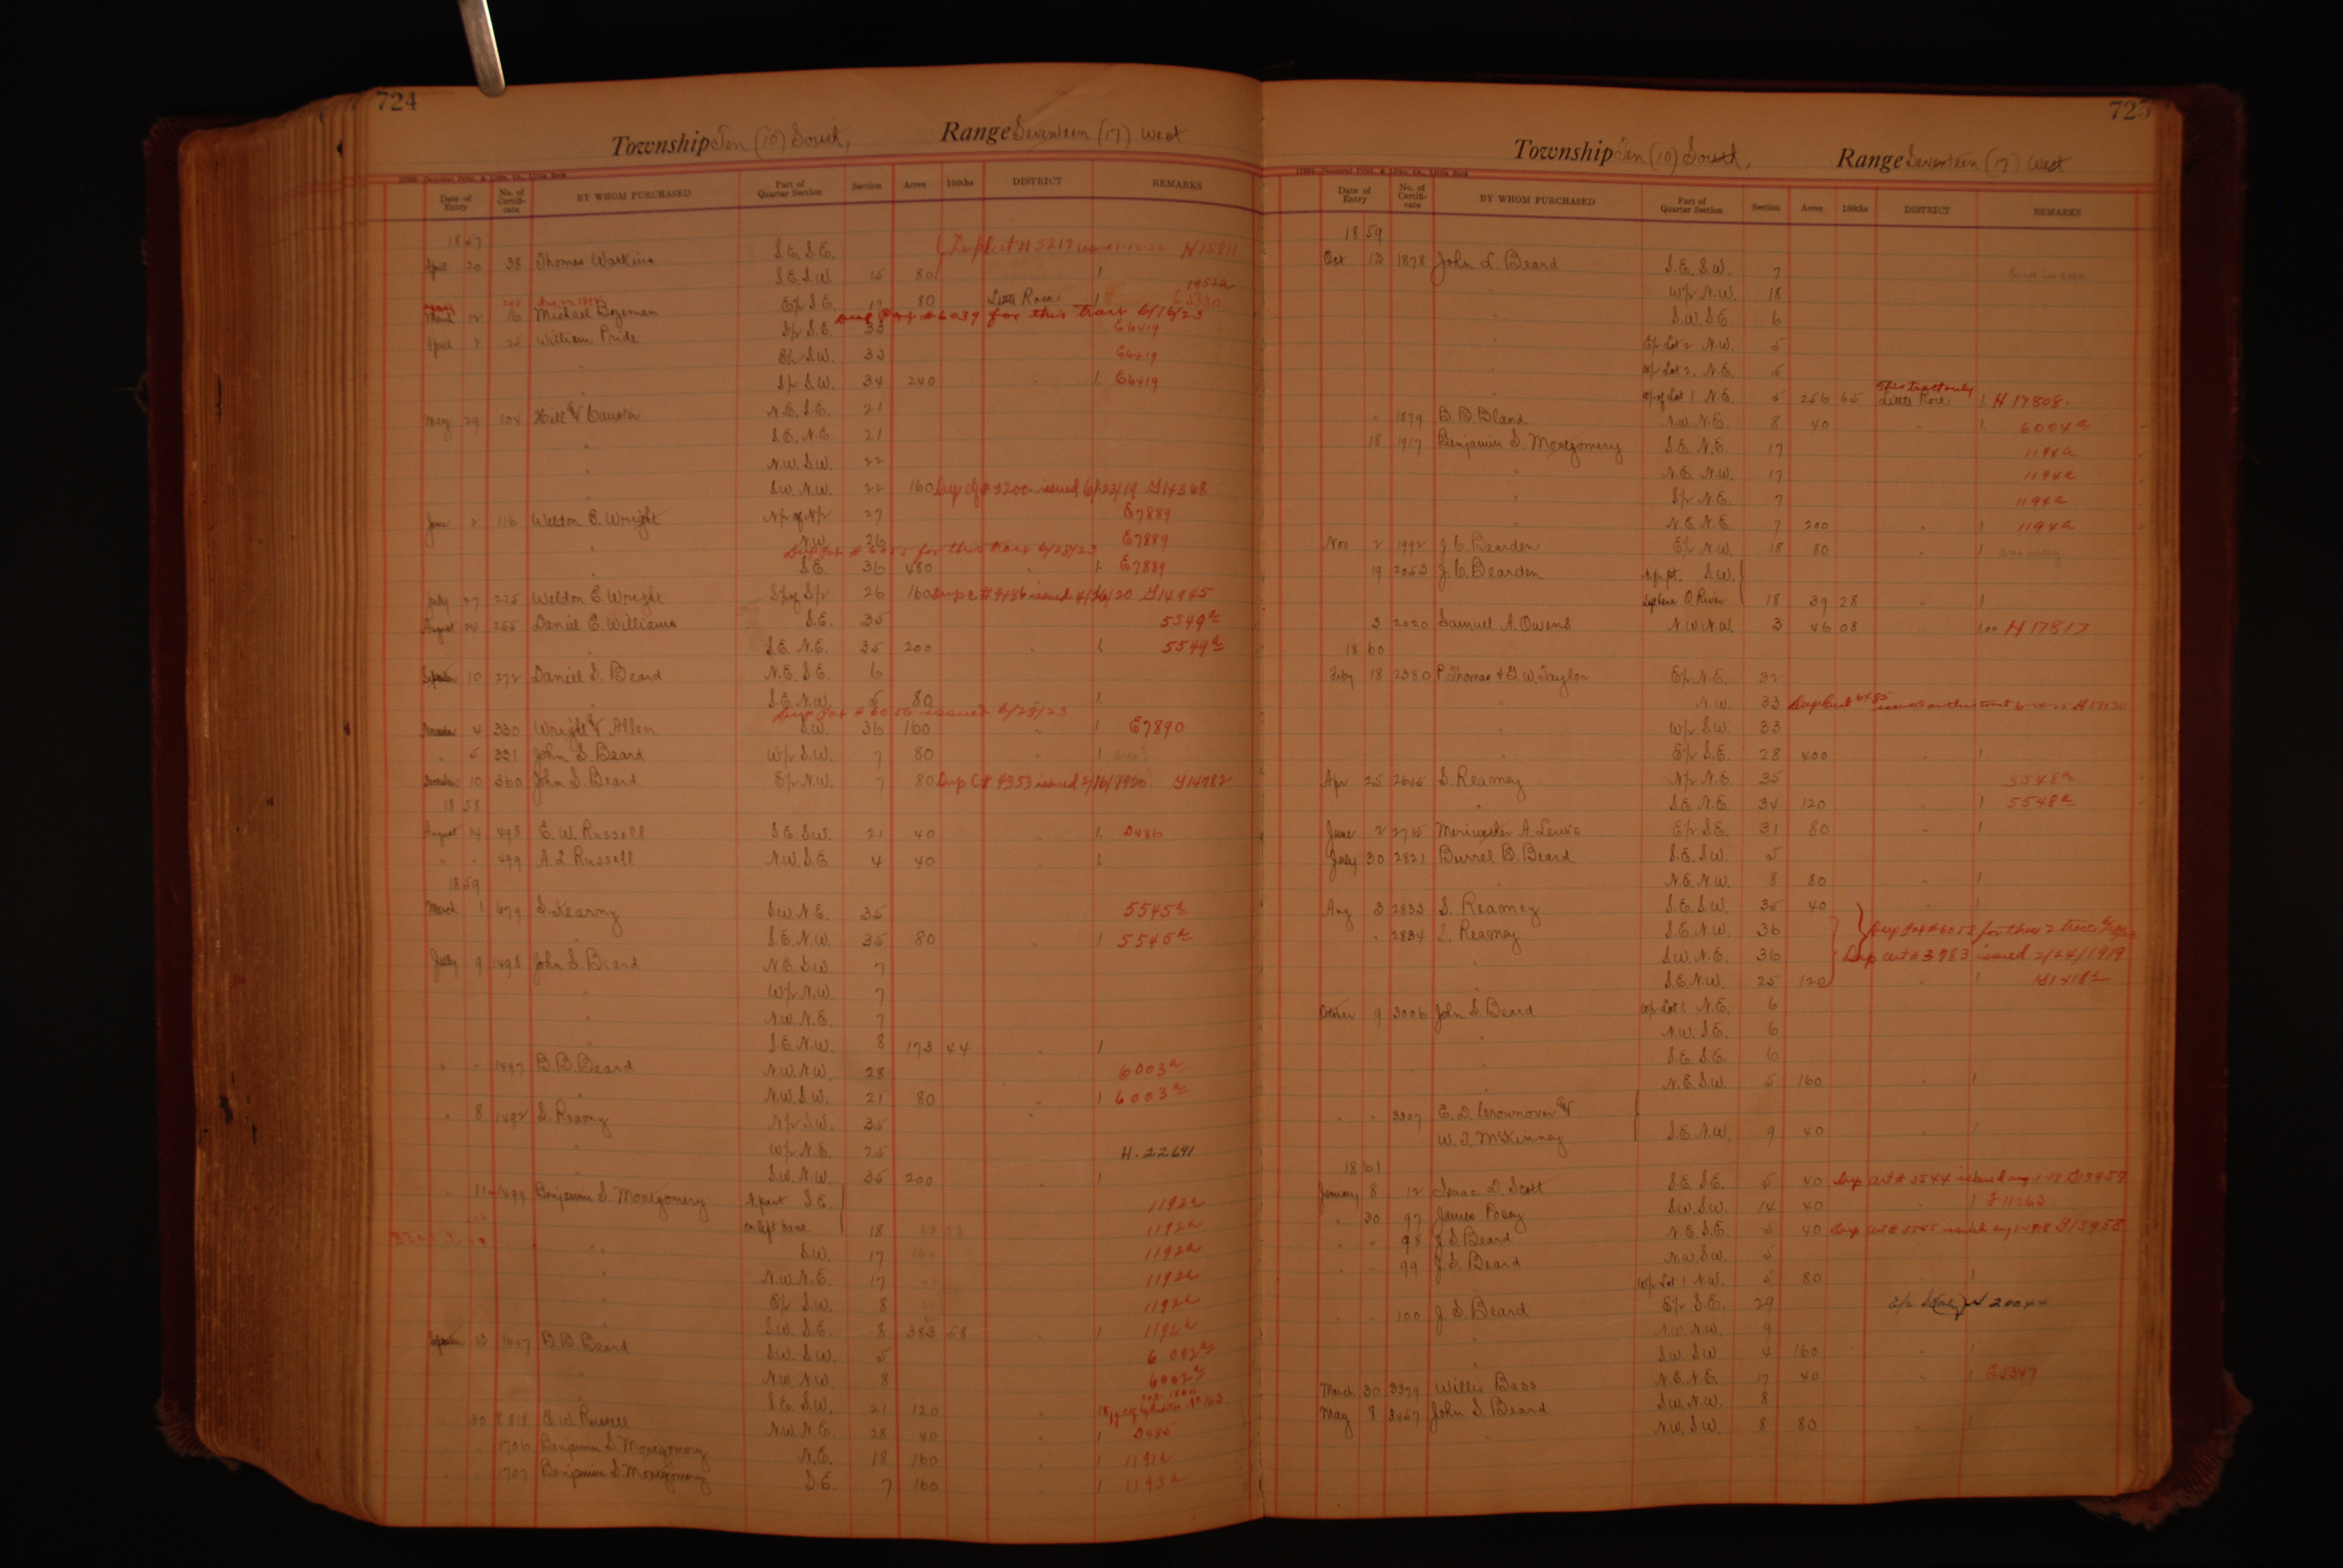 724
Township Ten (10) South, Range Seventeen (17) West
Date of Entry No. of Certificate BY WHOM PURCHASED Part of Quarter Section Section Acres 100ths DISTRICT REMARKS
1857
April 20 38 Thomas Watkins S.E. S.E. H15811
S.E. S.W. 15 80 1 1952a
March 12 16 Michael Bozeman E/2 S.E. 17 80 Little Rock 1
for this tract 6/16/23
April 2 25 William Pride S/2 S.E. 33 E6419
E/2 S.W. 33 E6419
S/2 S.W. 34 240 " 1. E6419
May 29 104 Hill & N.E. S.E. 21
" S.E. N.E. 21
" N.W. S.W. 22
" S.W. N.W. 22 160 Dup Ct # 3200 issued 6/23/19 G14368
June 2 116 Weldon E. Wright N/2 of N/2 27 E7889
" N.W. 26 E7889
for this tract 6/28/23
" S.E. 36 480 " 1. E7889
July 27 225 Weldon E. Wright S/2 of S/2 26 160 Dup Ct # 4486 issued 4/26/20 G14945
August 24 255 Daniel E. Williams S.E. 35 5549a
" S.E. N.E. 35 200 " 1 5549a
September 10 272 Daniel S. Beard N.E. S.E. 6
" S.E. N.W. 5 80 " 1.
Dup Pat # 6056 issued 6/28/23
November 4 330 Wright & Allen S.W. 36 160 " 1 E7890
" 5 331 John S. Beard W/2 S.W. 7 80 " 1
December 10 360 John S. Beard E/2 N.W. 7 80 Dup Ct # 4353 issued 2/16/1920. G14782
1858
August 14 498 E. W. Russell S.E. S.W. 21 40 " 1. D486
" " 499 A. L. Russell N.W. S.E. 4 40 " 1.
1859
March 1 679 S. Kearny S.W. N.E. 35 5545a
" S.E. N.W. 35 80 " 1 5545a
July 9 1498 John S. Beard N.E. S.W. 7
" W/2 N.W. 7
" N.W. N.E. 7
" S.E. N.W. 8 173 44 " 1
" " 1497 B. B. Beard N.W. N.W. 28 6003a
" N.W. S.W. 21 80 " 1 6003a
" 8 1492 S. Reamy N/2 S.W. 35
" W/2 N.E. 25 H.22691
" S.W. N.W. 35 200 " 1
" 11 1499 Benjamin S. Montgomery N. part S.E. 1192a
" on left bank 18 1192a
" " S.W. 17 160 1192a
" N.W. N.E. 17 1192a
" E/2 S.W. 8 1192a
" S.W. S.E. 8 383 58 " 1 1192a
September 13 1647 B. B. Beard S.W. S.W. 5 6002a
" N.W. N.W. 8 6002a
" S.E. S.W. 21 120 " 1
" 30 1818 E. W. Russell N.W. N.E. 28 40 " 1 D485
1706 Benjamin S. Montgomery N.E. 18 160 " 1 1191a
" " 1707 Benjamin S. Montgomery S.E. 7 160 " 1 1193a
725
Township Ten (10) South, Range Seventeen (17) West
Date of Entry No. of Certificate BY WHOM PURCHASED Part of Quarter Section Section Acres 100ths DISTRICT REMARKS
1859
Oct 13 1878 John S. Beard S.E. S.W. 7
" W/2 N.W. 18
" S.W. S.E. 6
" E/2 Lot 2 N.W. 5
" W/2 Lot 2. N.E. 5
This tract only
" W/2 of Lot 1 N.E. 5 256 65 Little Rock 1 H 17808.
" 1879 B. B. Bland N.W. N.E. 8 40 " 1. 6004a
18 1917 Benjamin S. Montgomery S.E. N.E. 17 1194a
" N.E. N.W. 17 1194a
" S/2 N.E. 7 1194a
" N.E. N.E. 7 200 " 1 1194a
Nov 2 1992 J. C. Bearden E/2 N.W. 18 80 " 1
19 2053 J. C. Bearden N. pt. S.W.
18 39 28 " 1
3 2020 Samuel A. Owens N.W. N.W. 3 46 08 " 1.00 H17817
1860
Feby 18 2380 P. Thomas & G. W. Taylor E/2 N.E. 32
" N.W. 33
" W/2 S.W. 33
" E/2 S.E. 28 400 " 1
Apr 25 2615 S. Reamey N/2 N.E. 35 5548a
" S.E. N.E. 34 120 " 1 5548a
June 2 2715 Meriwether A. Lewis E/2 S.E. 31 80 " 1
July 30 2821 Burrel B. Beard S.E. S.W. 5
" N.E. N.W. 8 80 " 1
Aug 3 2833 S. Reamey S.E. S.W. 35 40 " 1
" 2834 S. Reamey S.E. N.W. 36 Dup Pat # 6052 for these 2 tracts
" S.W. N.E. 36 Dup cert # 3783 issued 2/24/1919
" S.E. N.W. 25 120 " 1
October 9 3006 John S. Beard W/2 Lot 1. N.E. 6
" N.W. S.E. 6
" S.E. S.E. 6
" N.E. S.W. 5 160 " 1
" " 3307 E. D. Crownover &
W. T. McKinney S.E. N.W. 9 40 " 1
1861
January 8 12 Isaac D. Scott S.E. S.E. 5 40 Dup cert # 3544 issued aug-1-18 G13959
" 30 97 James Posey S.W. S.W. 14 40 " 1 F11263
" " 98 J. S. Beard N.E. S.E. 5 40 Dup cert # 3545 issued aug 1-1918 G13958
" " 99 J. S. Beard N.W. S.W. 5
W/2 Lot 1 N.W. 5 80 " 1
" " 100 J. S. Beard E/2 S.E. 29 20044
" N.W. N.W. 9
" S.W. S.W. 4 160 " 1
March 30 3379 Willis Bass N.E. N.E. 17 40 " 1 E5347
May 8 3457 John S. Beard S.W. N.W. 8
" N.W. S.W. 8 80 " 1